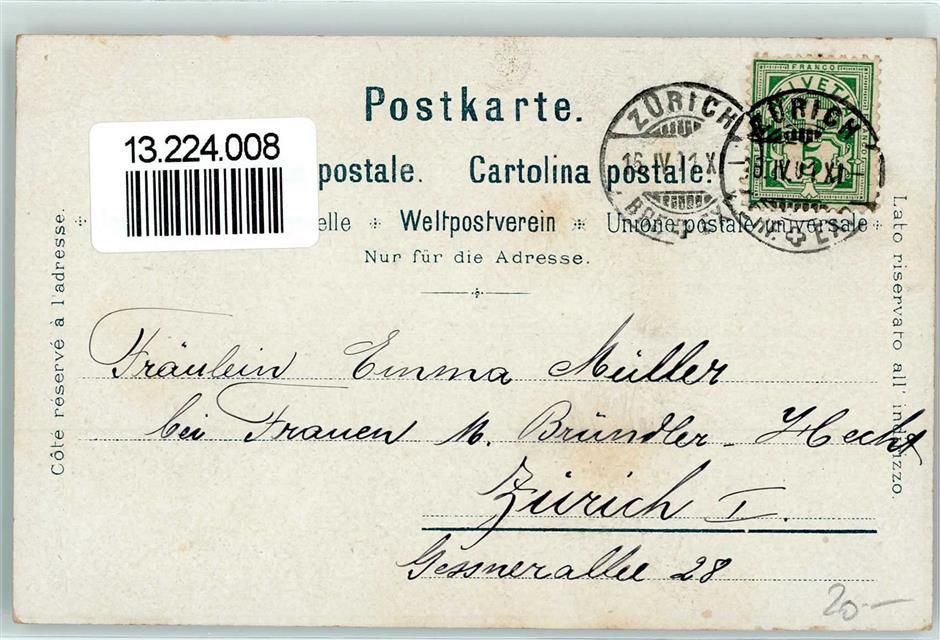 Postkarte.
13.224.008
postale. Cartolina postale.
elle * Weltpostverein * Unione postale universale
Nur für die Adresse.
Côté réservé à l'adresse.
Lato riservato all' indirizzo.
FRANCO
ZÜRICH
16.IV.01.X
BRF. EXP.
ZÜRICH
XI
Fräulein Emma Müller
bei Frauen M. Bründler-Hecht
Zürich I.
Gessnerallee 28
20.-